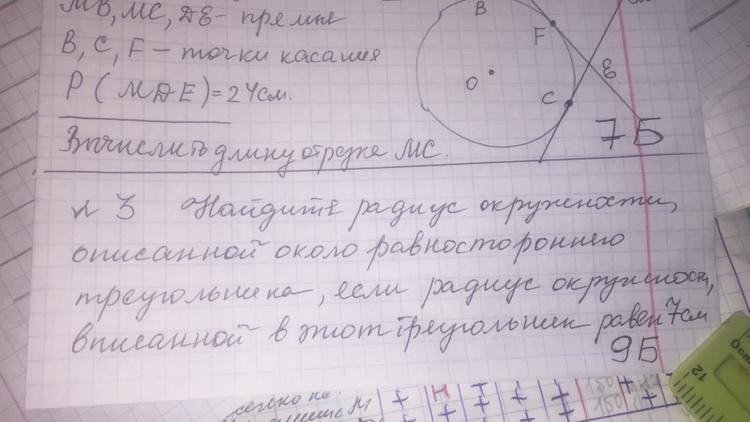 МВ, МС, DE - прямые
В, С, F - точки касания
P (MDE) = 24см.
Вычислить длину отрезка МС.
B
F
E
O
C
7Б
№ 3 Найдите радиус окружности,
описанной около равностороннего
треугольника, если радиус окружности,
вписанной в этот треугольник равен 7см
9Б
12